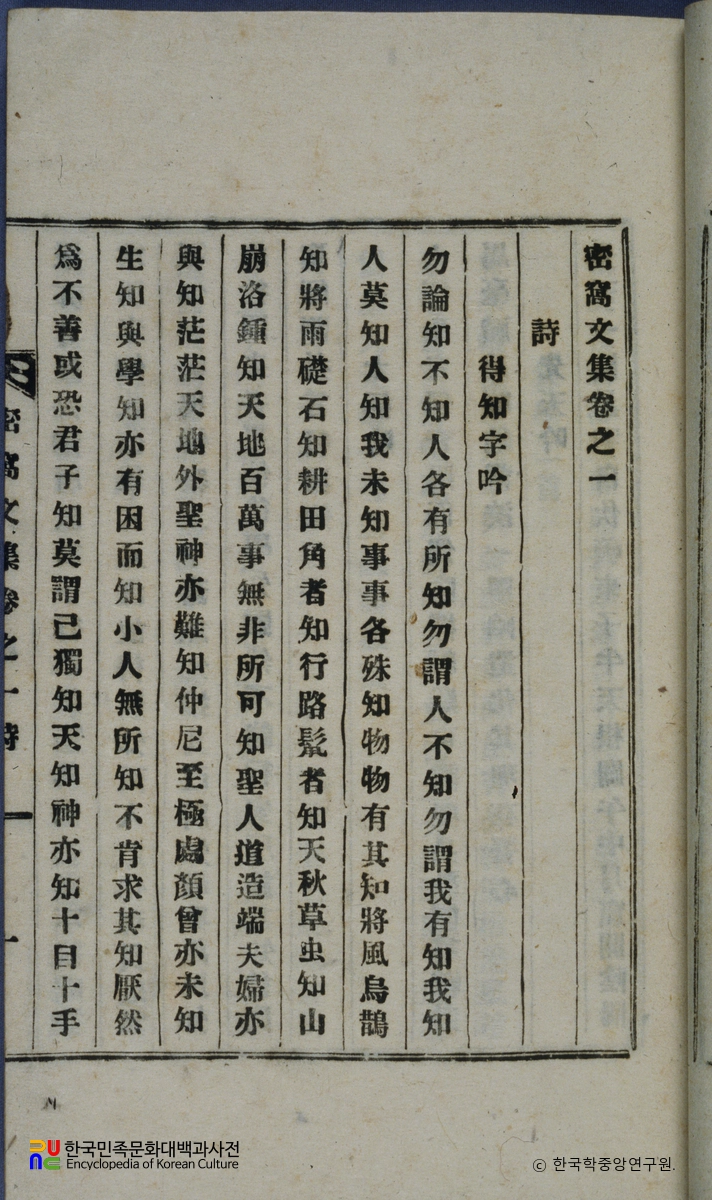 密窩文集卷之一
詩
得知字吟
勿論知不知人各有所知勿謂人不知勿謂我有知我知
人莫知人知我未知事事各殊知物物有其知將風烏鵲
知將雨礎石知耕田角者知行路鬣者知天秋草虫知山
崩洛鍾知天地百萬事無非所可知聖人道造端夫婦亦
與知茫茫天地外聖神亦難知仲尼至極處顔曾亦未知
生知與學知亦有困而知小人無所知不肯求其知厭然
爲不善或恐君子知莫謂己獨知天知神亦知十目十手
密窩文集卷之一 詩 一
한국민족문화대백과사전
Encyclopedia of Korean Culture
© 한국학중앙연구원.